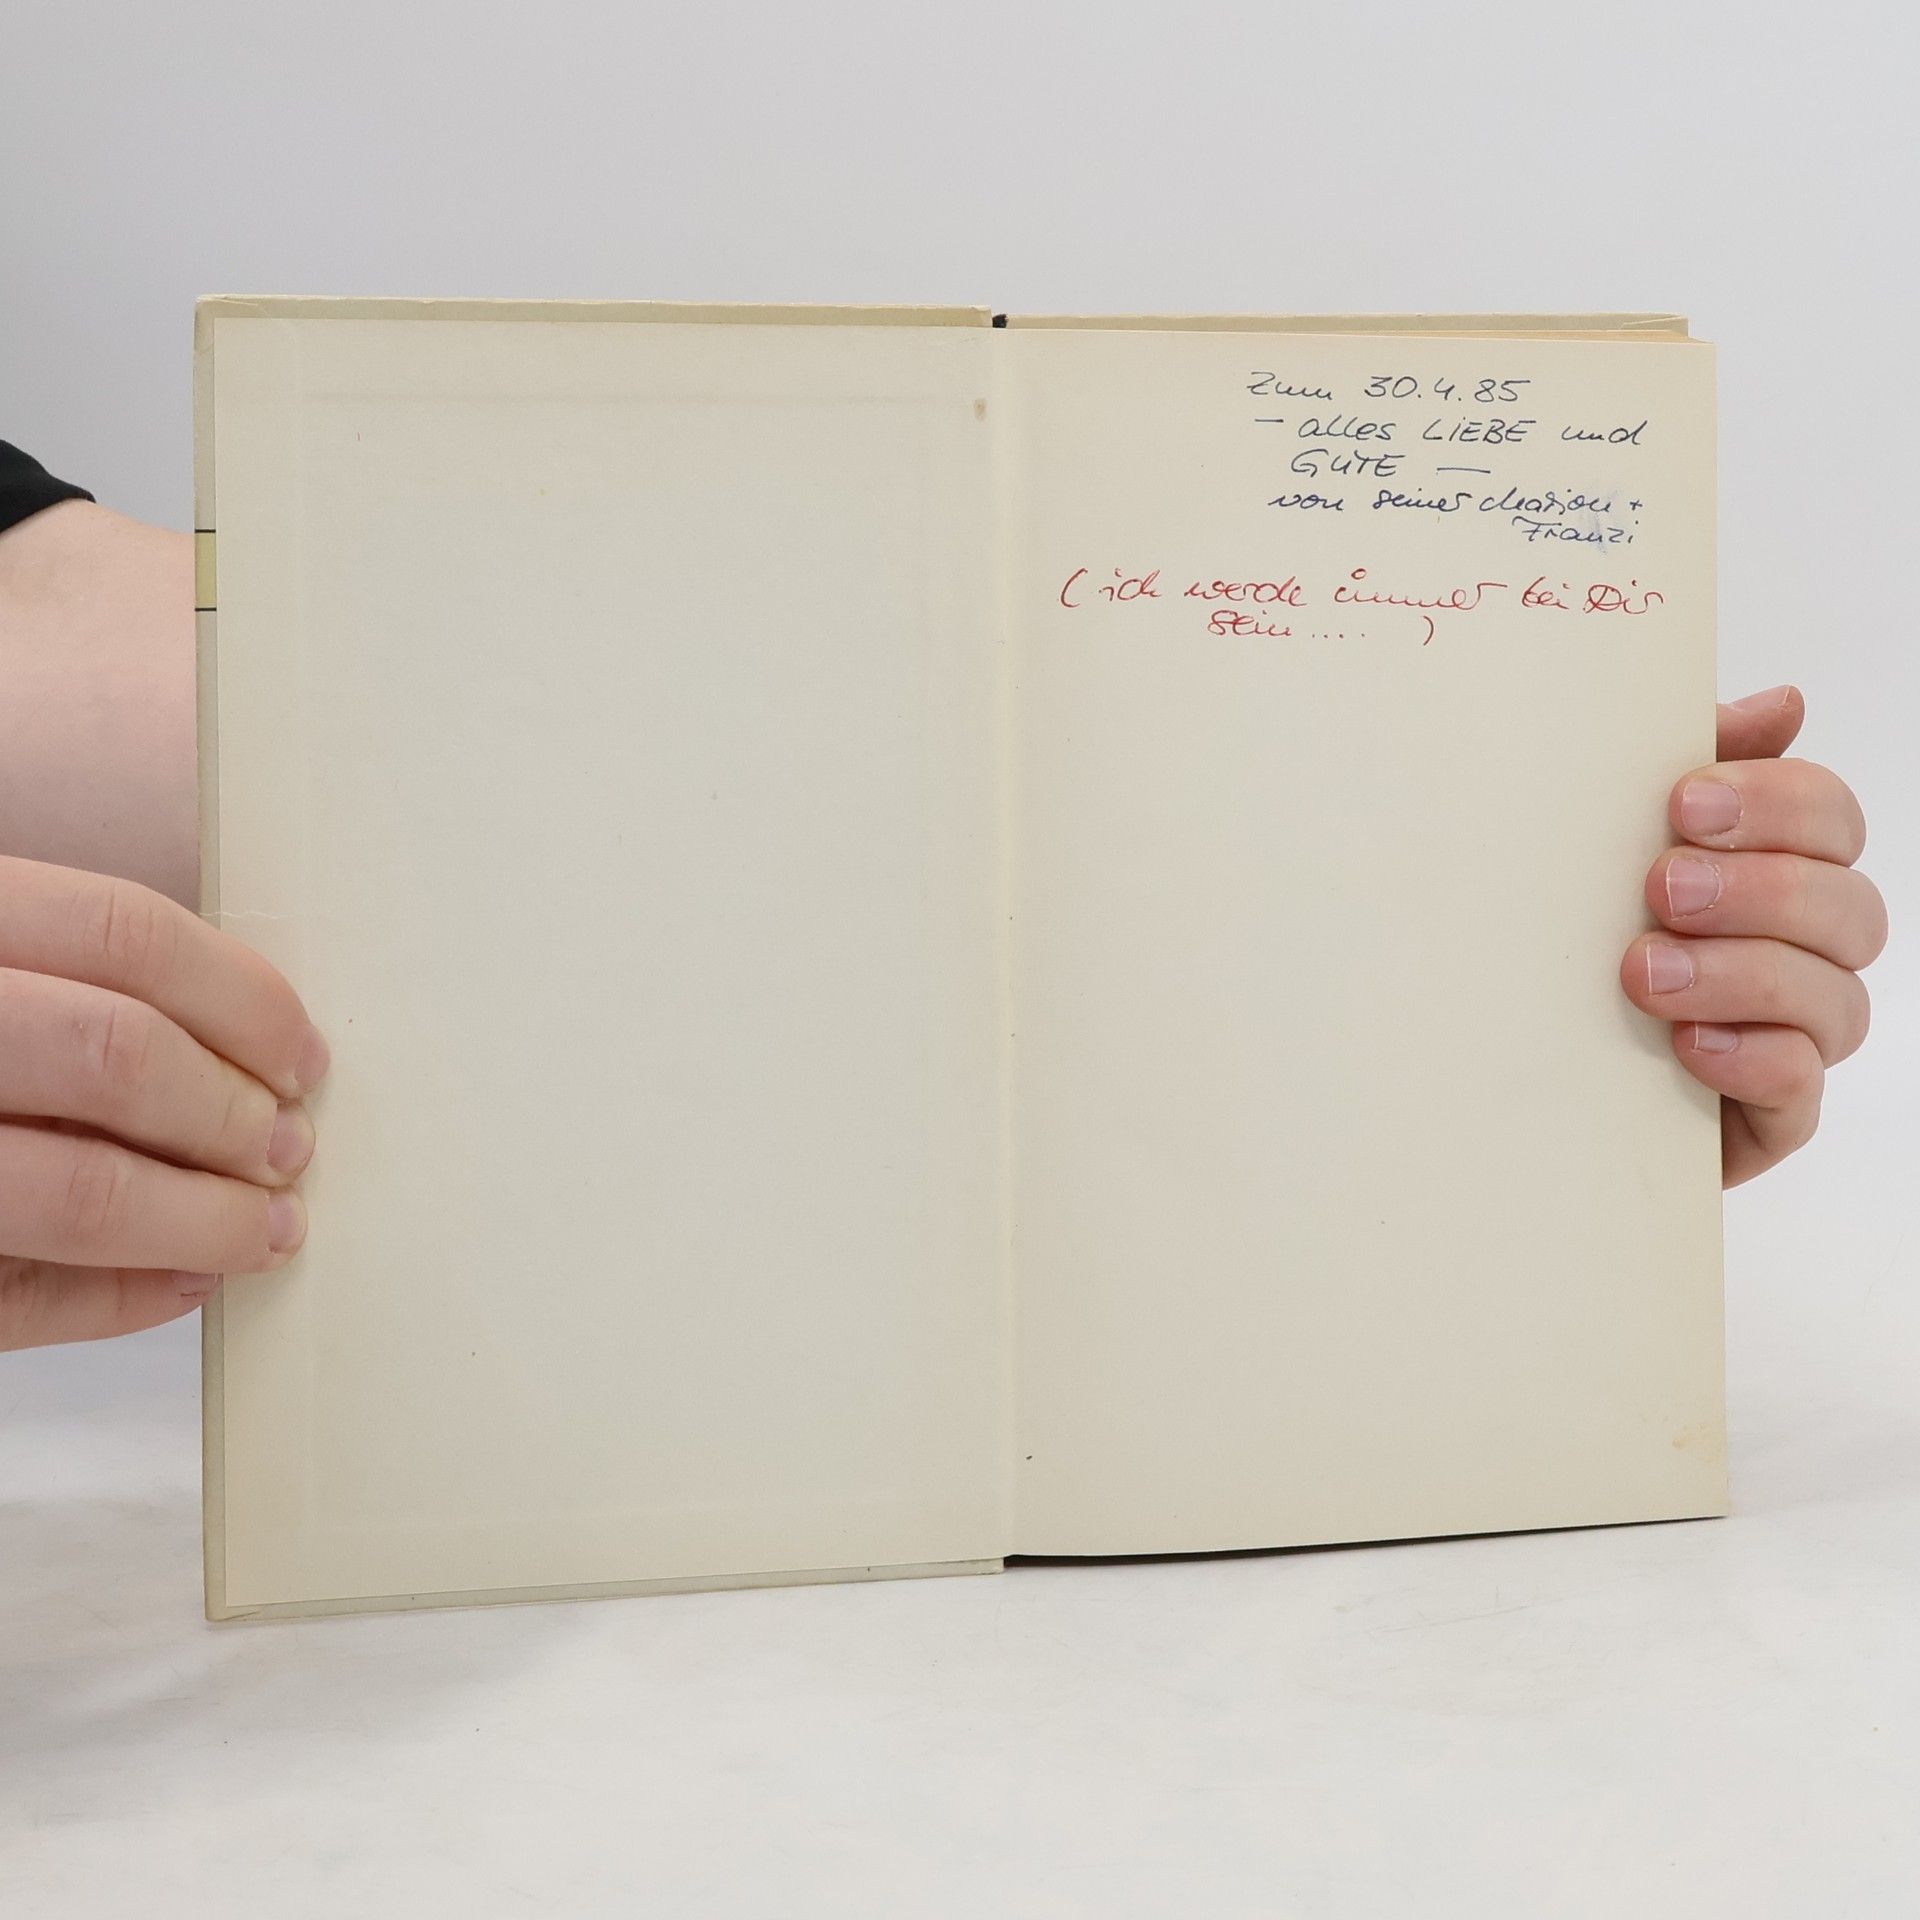 Zum 30.4.85
- alles LiEBE und
GUTE —
von seiner Marion +
Franzi
( ich werde immer bei Dir
sein .... )